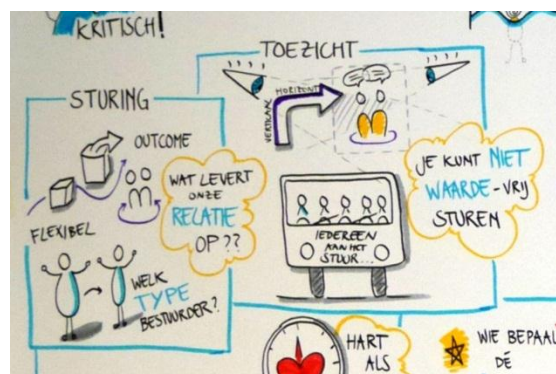 KRITISCH!
TOEZICHT
STURING
VERTICAAL
HORIZONTAAL
OUTCOME
FLEXIBEL
WAT LEVERT
ONZE
RELATIE
OP??
WELK
TYPE
BESTUURDER?
IEDEREEN
AAN HET
STUUR...
JE KUNT NIET
WAARDE-VRIJ
STUREN
HART
ALS
WIE BEPAAL
DÉ